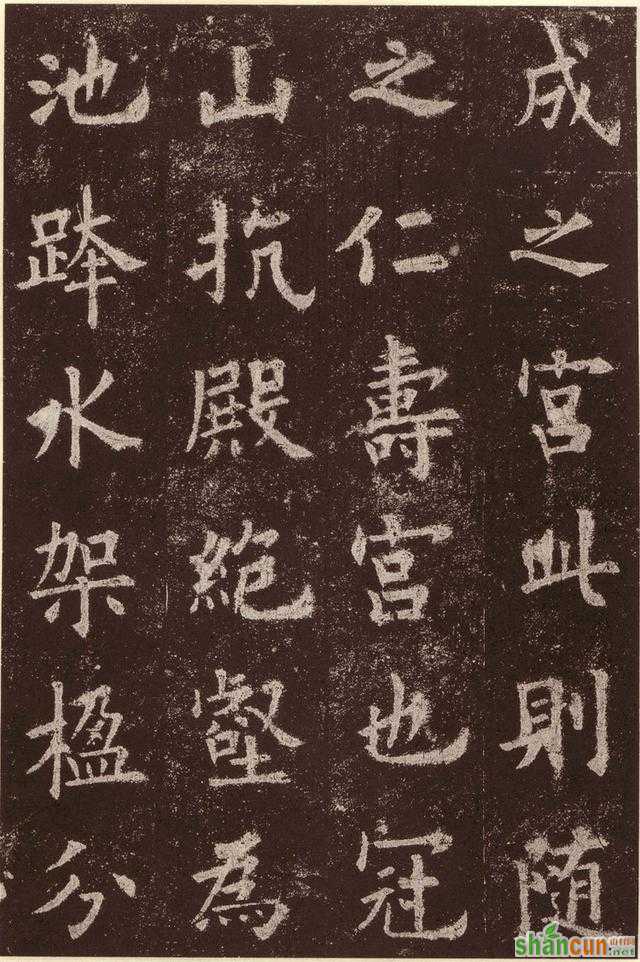 成之宮此則随
之仁壽宮也冠
山抗殿絶壑為
池跨水架楹分
shancun
.net